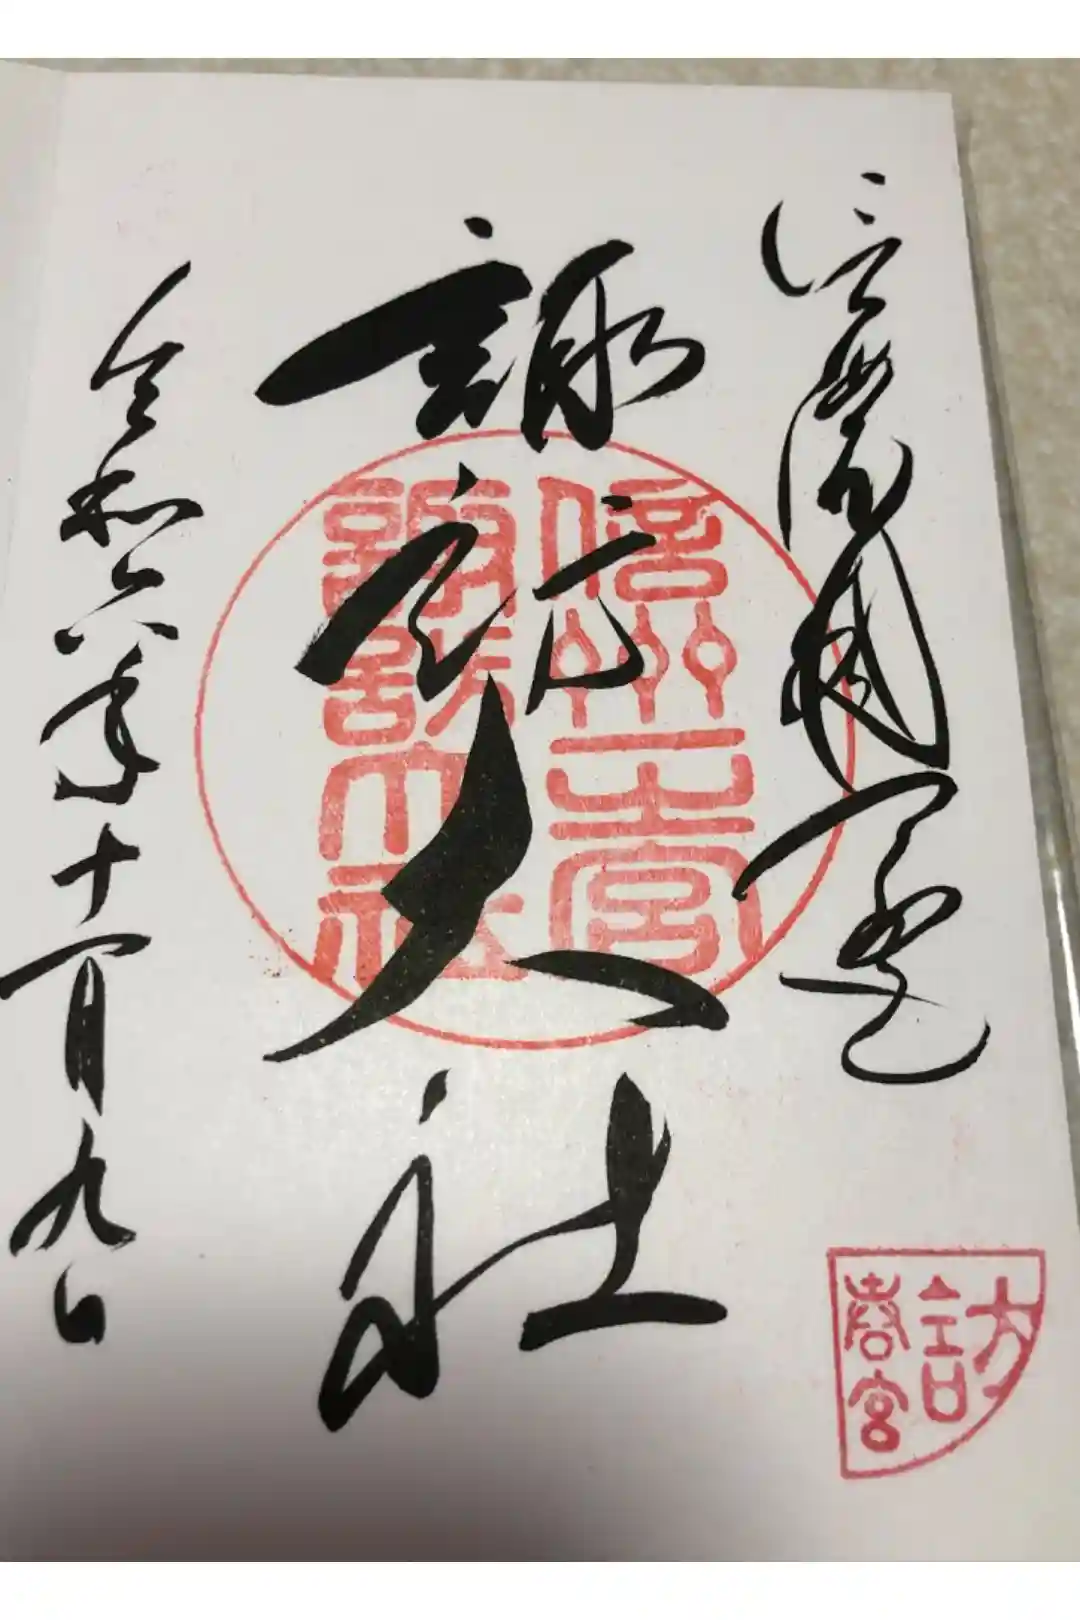 信濃國一之宮
諏訪大社
令和六年十一月九日
信州一宮
諏訪大社
訪
春宮